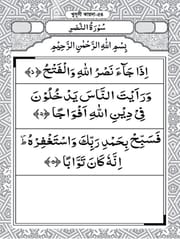 سُوْرَةُ النَّصْرِ
بِسْمِ اللهِ الرَّحْمٰنِ الرَّحِيْمِ
اِذَا جَآءَ نَصْرُ اللهِ وَالْفَتْحُ ﴿١﴾
وَرَاَيْتَ النَّاسَ يَدْخُلُوْنَ
فِيْ دِيْنِ اللهِ اَفْوَاجًا ﴿٢﴾
فَسَبِّحْ بِحَمْدِ رَبِّكَ وَاسْتَغْفِرْهُ ؕ
اِنَّهٗ كَانَ تَوَّابًا ﴿٣﴾